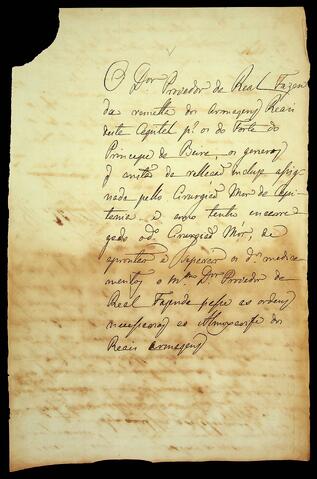 O D.or Provedor da Real Fazen
da remetta dos Armazens Reais
desta Capital p.a os do Forte do
Principe da Beira, os generos
q constão da rellação incluza assig
nada pello Cirurgião Mor da Capi
tania e como tenho encarre
gado o d.o Cirurgião Mor, de
apromtar e os d.os medica
mentos o m.mo D.or Provedor da
Real Fazenda passe as ordens
necessarias ao Almoxarife dos
Reais Armazens